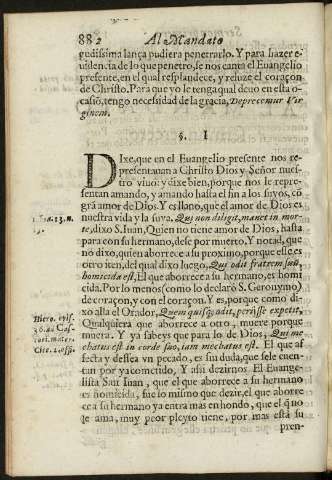 882 Al Mandato
gudissima lança pudiera penetrarlo. Y para hazer e-
uidencia de lo que penetrò, se nos canta el Euangelio
presente, en el qual resplandece, y reluze el coraçon
de Christo. Para que yo le tenga qual deuo en esta o-
casiõ, tengo necessidad de la gracia, Deprecemur Vir
ginem.
§. I
DIxe, que en el Euangelio presente nos re-
presentauan a Christo Dios y Señor nues-
tro viuo: y dixe bien, porque nos le repre-
sentan amando, y amando hasta el fin a los suyos, cõ
grã amor de Dios. Y es llano, que el amor de Dios es
nuestra vida y la suya, Qui non diligit, manet in mor-
te, dixo S. Iuan, Quien no tiene amor de Dios, hasta
para con su hermano, dese por muerto. Y notad, que
no dixo, quien aborrece a su proximo, porque esse es
otro item, del qual dixo luego, Qui odit fratrem suũ,
homicida est, El que aborrece a su hermano, es homi
cida. Por lo menos (como lo declarò S. Geronymo)
de coraçon, y con el coraçon. Y es, porque como di-
xo alla el Orador, Quem quisq; odit, perijsse expetit,
Qualquiera que aborrece a otro, muere porque
muera. Y ya sabeys que para lo de Dios, Qui me
chatus est in corde suo, iam mechatus est. El que af
fecta y dessea vn pecado, es sin duda, que sele cuen-
tan por ya cometido. Y assi dezirnos el Euange-
lista San Iuan, que el que aborrece a su hermano
es homicida, fue lo mismo que dezir, el que aborre
ce a su hermano ya entra mas en hondo, que el q̃ no
le ama, muy peor pleyto tiene, por mas està su
pren-
1. Ioa. 3. n.
Hiero. epis.
36. ad Cas-
tori. mater.
Cice. 2. offi.